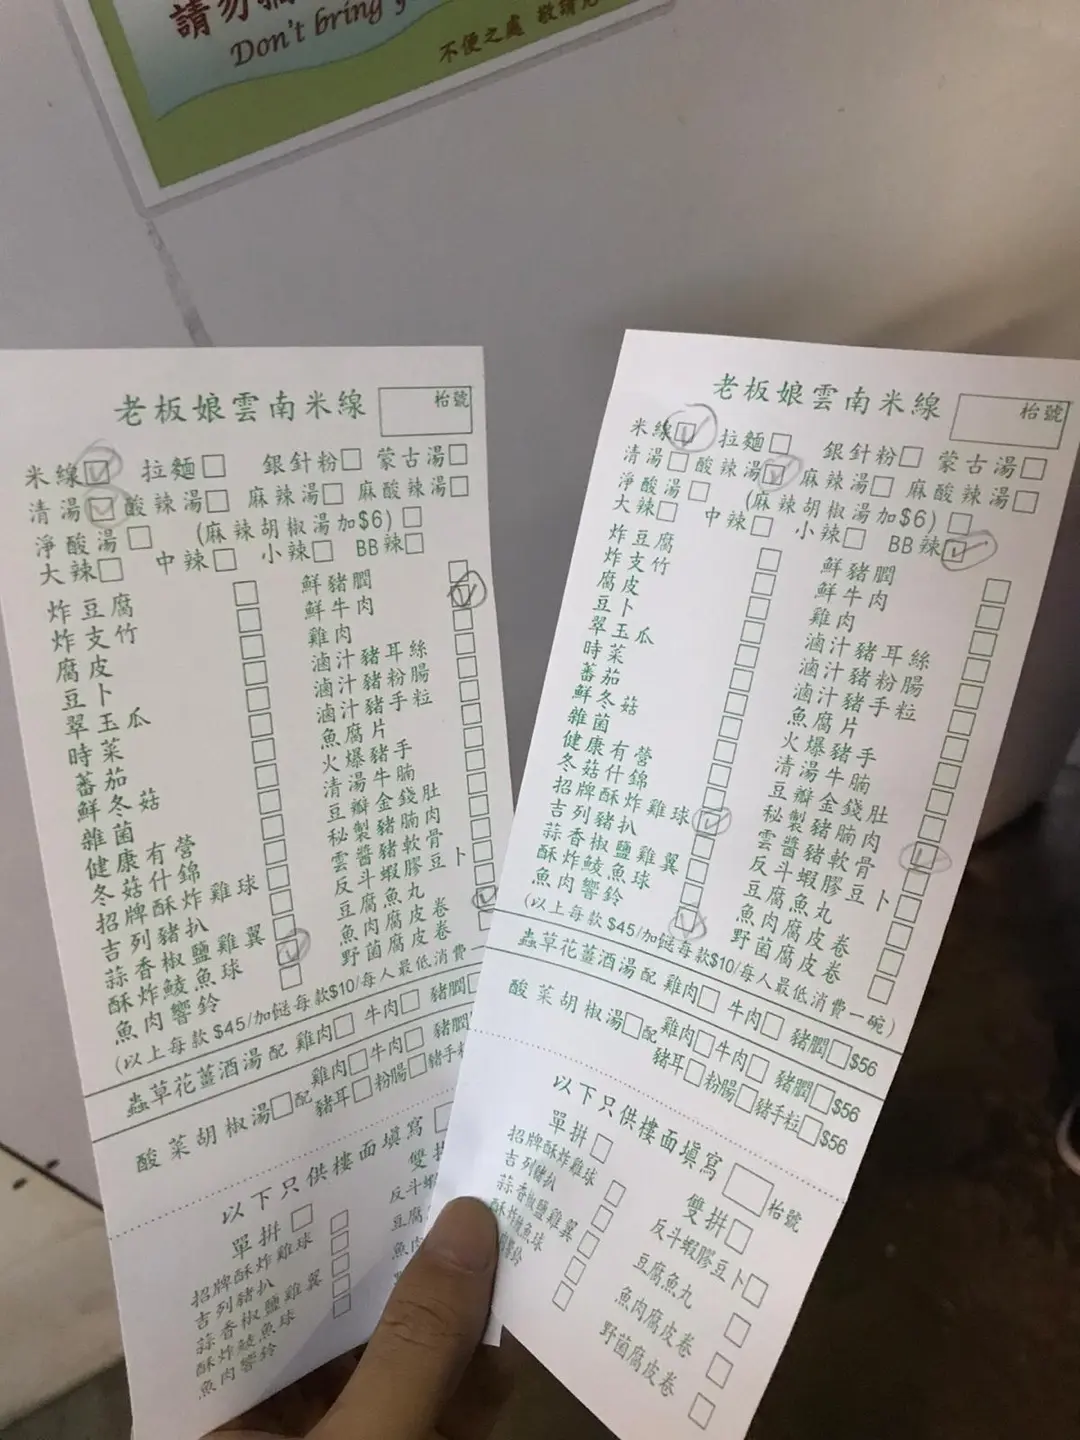 請勿
Don't bring
不便之處 敬請見
老板娘雲南米線
枱號
米線 拉麵 銀針粉 蒙古湯
清湯 酸辣湯 麻辣湯 麻酸辣湯
淨酸湯 (麻辣胡椒湯加$6)
大辣 中辣 小辣 BB辣
炸豆腐
炸支竹
腐皮
豆卜
翠玉瓜
時菜
蕃茄
鮮冬菇
雜菌
健康有營
冬菇什錦
招牌酥炸雞球
吉列豬扒
蒜香椒鹽雞翼
酥炸鯪魚球
魚肉響鈴
鮮豬膶
鮮牛肉
雞肉
滷汁豬耳絲
滷汁豬粉腸
滷汁豬手粒
魚腐片
火爆豬手
清湯牛腩
豆瓣金錢肚
秘製豬腩肉
雲醬豬軟骨
反斗蝦膠豆卜
豆腐魚丸
魚肉腐皮卷
野菌腐皮卷
(以上每款$45/加餸每款$10/每人最低消費一
蟲草花薑酒湯配 雞肉 牛肉 豬膶
酸菜胡椒湯 配 雞肉 牛肉 豬膶
豬耳 粉腸 豬手粒
以下只供樓面填寫
單拼
招牌酥炸雞球
吉列豬扒
蒜香椒鹽雞翼
酥炸鯪魚球
魚肉響鈴
雙拼
反斗蝦
豆腐
魚肉
老板娘雲南米線
枱號
米線 拉麵 銀針粉 蒙古湯
清湯 酸辣湯 麻辣湯 麻酸辣湯
淨酸湯 (麻辣胡椒湯加$6)
大辣 中辣 小辣 BB辣
炸豆腐
炸支竹
腐皮
豆卜
翠玉瓜
時菜
蕃茄
鮮冬菇
雜菌
健康有營
冬菇什錦
招牌酥炸雞球
吉列豬扒
蒜香椒鹽雞翼
酥炸鯪魚球
魚肉響鈴
鮮豬膶
鮮牛肉
雞肉
滷汁豬耳絲
滷汁豬粉腸
滷汁豬手粒
魚腐片
火爆豬手
清湯牛腩
豆瓣金錢肚
秘製豬腩肉
雲醬豬軟骨
反斗蝦膠豆卜
豆腐魚丸
魚肉腐皮卷
野菌腐皮卷
(以上每款$45/加餸每款$10/每人最低消費一碗)
蟲草花薑酒湯配 雞肉 牛肉 豬膶 $56
酸菜胡椒湯 配 雞肉 牛肉 豬膶 $56
豬耳 粉腸 豬手粒 $56
以下只供樓面填寫 枱號
單拼
招牌酥炸雞球
吉列豬扒
蒜香椒鹽雞翼
酥炸鯪魚球
響鈴
雙拼
反斗蝦膠豆卜
豆腐魚丸
魚肉腐皮卷
野菌腐皮卷